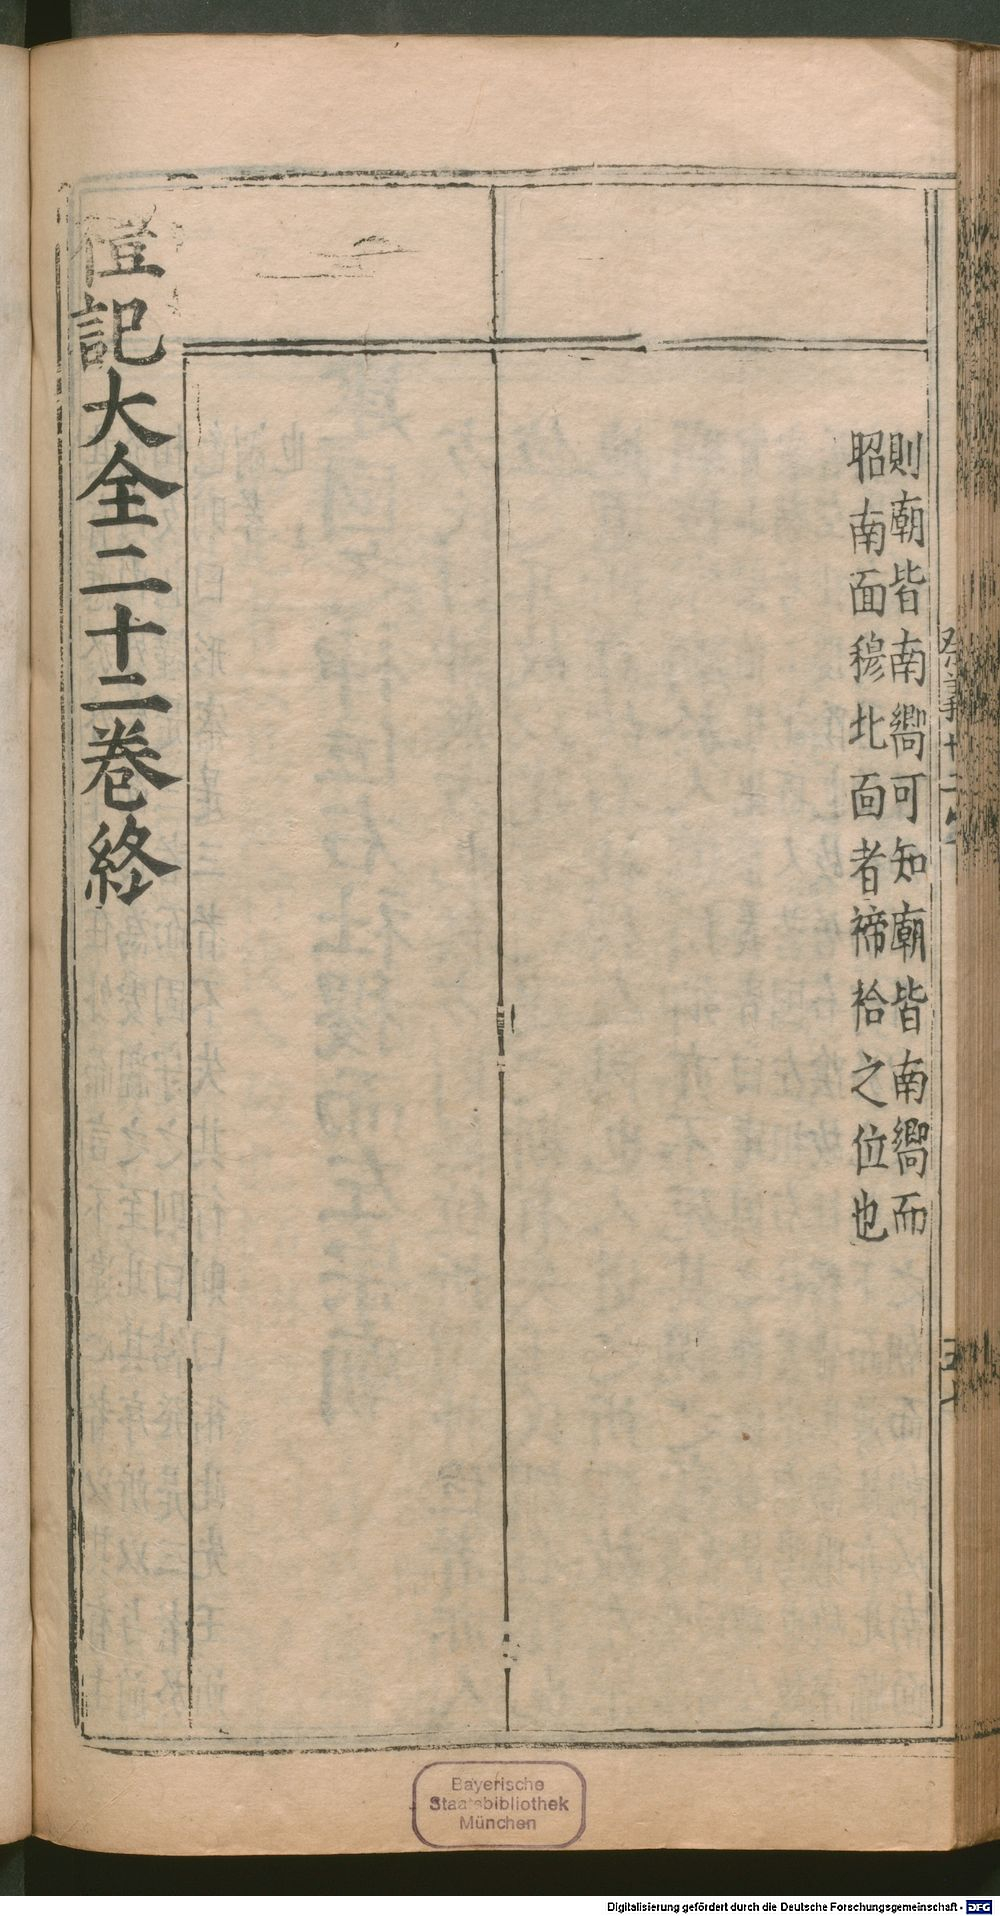 則廟皆南嚮可知廟皆南嚮而
昭南面穆北面者禘祫之位也
禮記大全二十二卷終
Bayerische
Staatsbibliothek
München
Digitalisierung gefördert durch die Deutsche Forschungsgemeinschaft - DFG